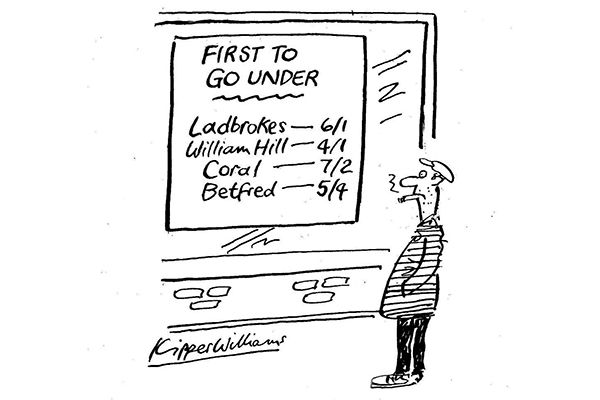 FIRST TO
GO UNDER
Ladbrokes — 6/1
William Hill — 4/1
Coral — 7/2
Betfred — 5/4
KipperWilliams